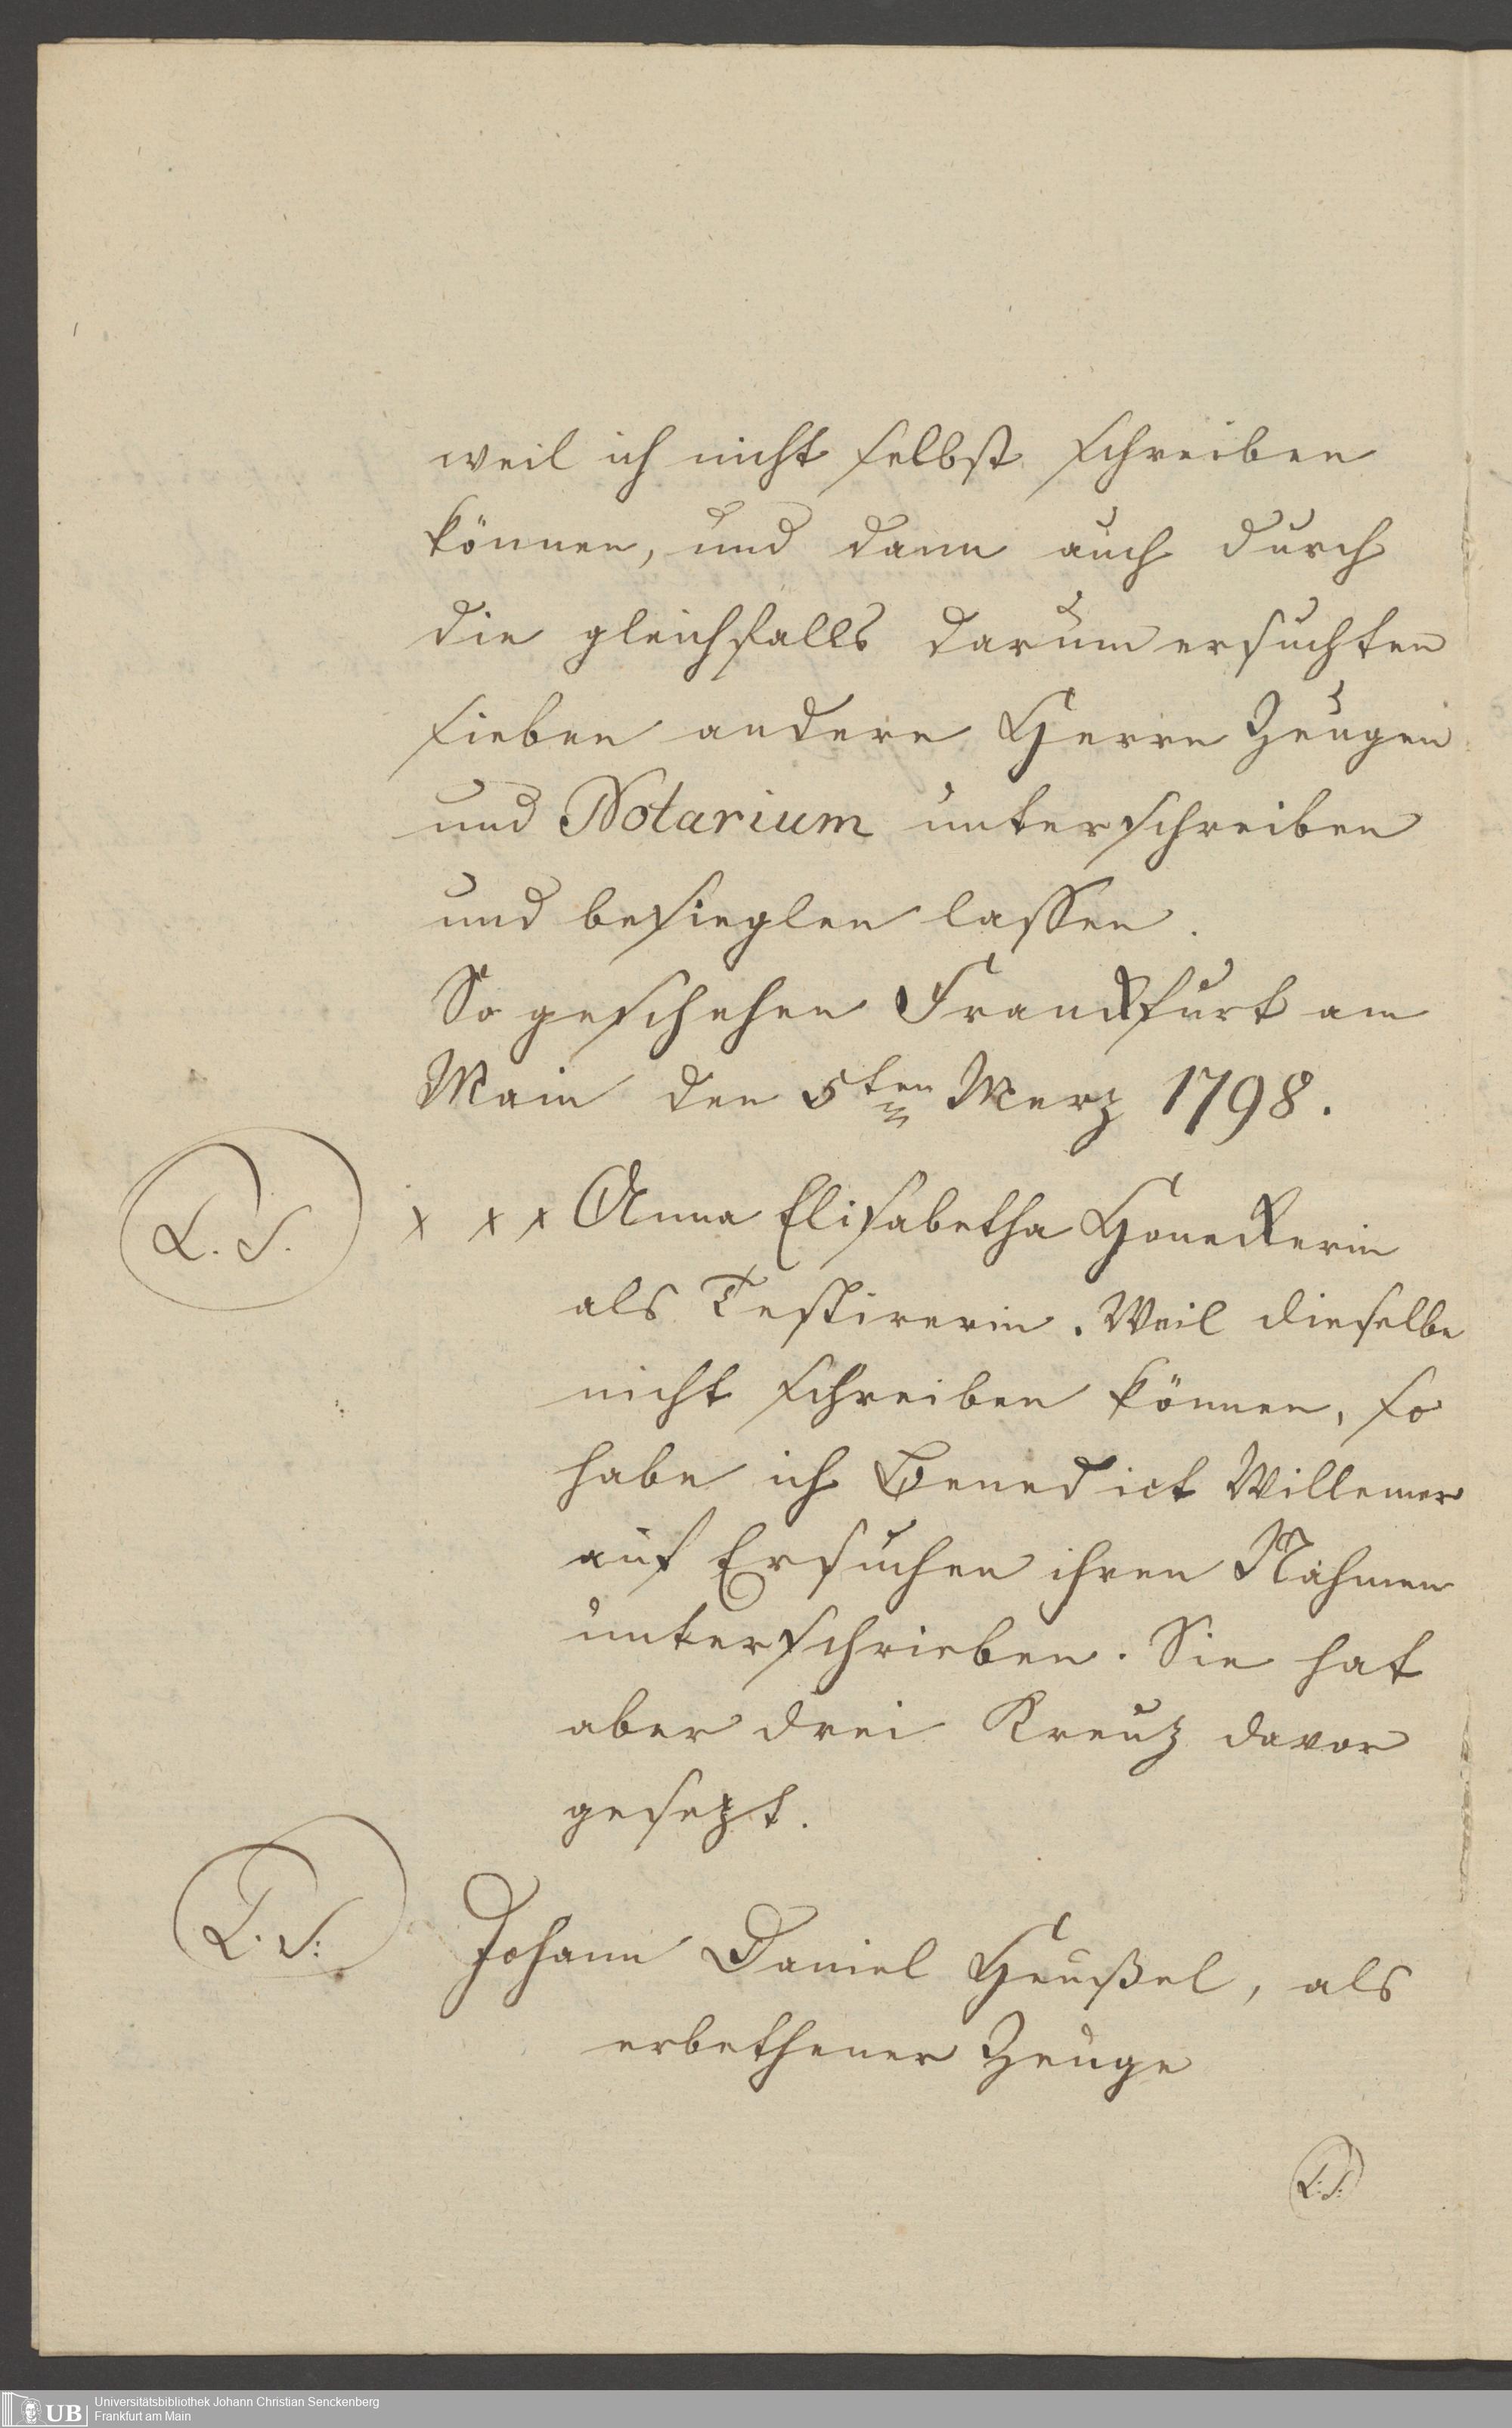 weil ich nicht selbst schreiben
können, und dann auch durch
die gleichfalls darum ersuchten
sieben andere Herrn Zeugen
und Notarium unterschreiben
und besieglen lassen.
So geschehen Franckfurt am
Main den 5ten Merz 1798.
L. S.
x x x Anna Elisabetha Honeckerin
als Testirerin. Weil dieselbe
nicht schreiben können, so
habe ich Benedict Willemer
auf Ersuchen ihren Nahmen
unterschrieben. Sie hat
aber drei Kreuz davor
gesezt.
L. S.
Johann Daniel Heußel, als
erbethener Zeuge
L. S.
UB
Universitätsbibliothek Johann Christian Senckenberg
Frankfurt am Main